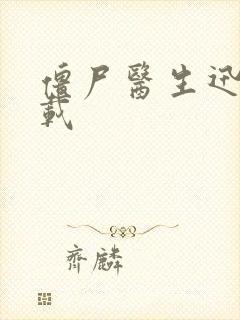 僵尸醫生迅
載
齊麟